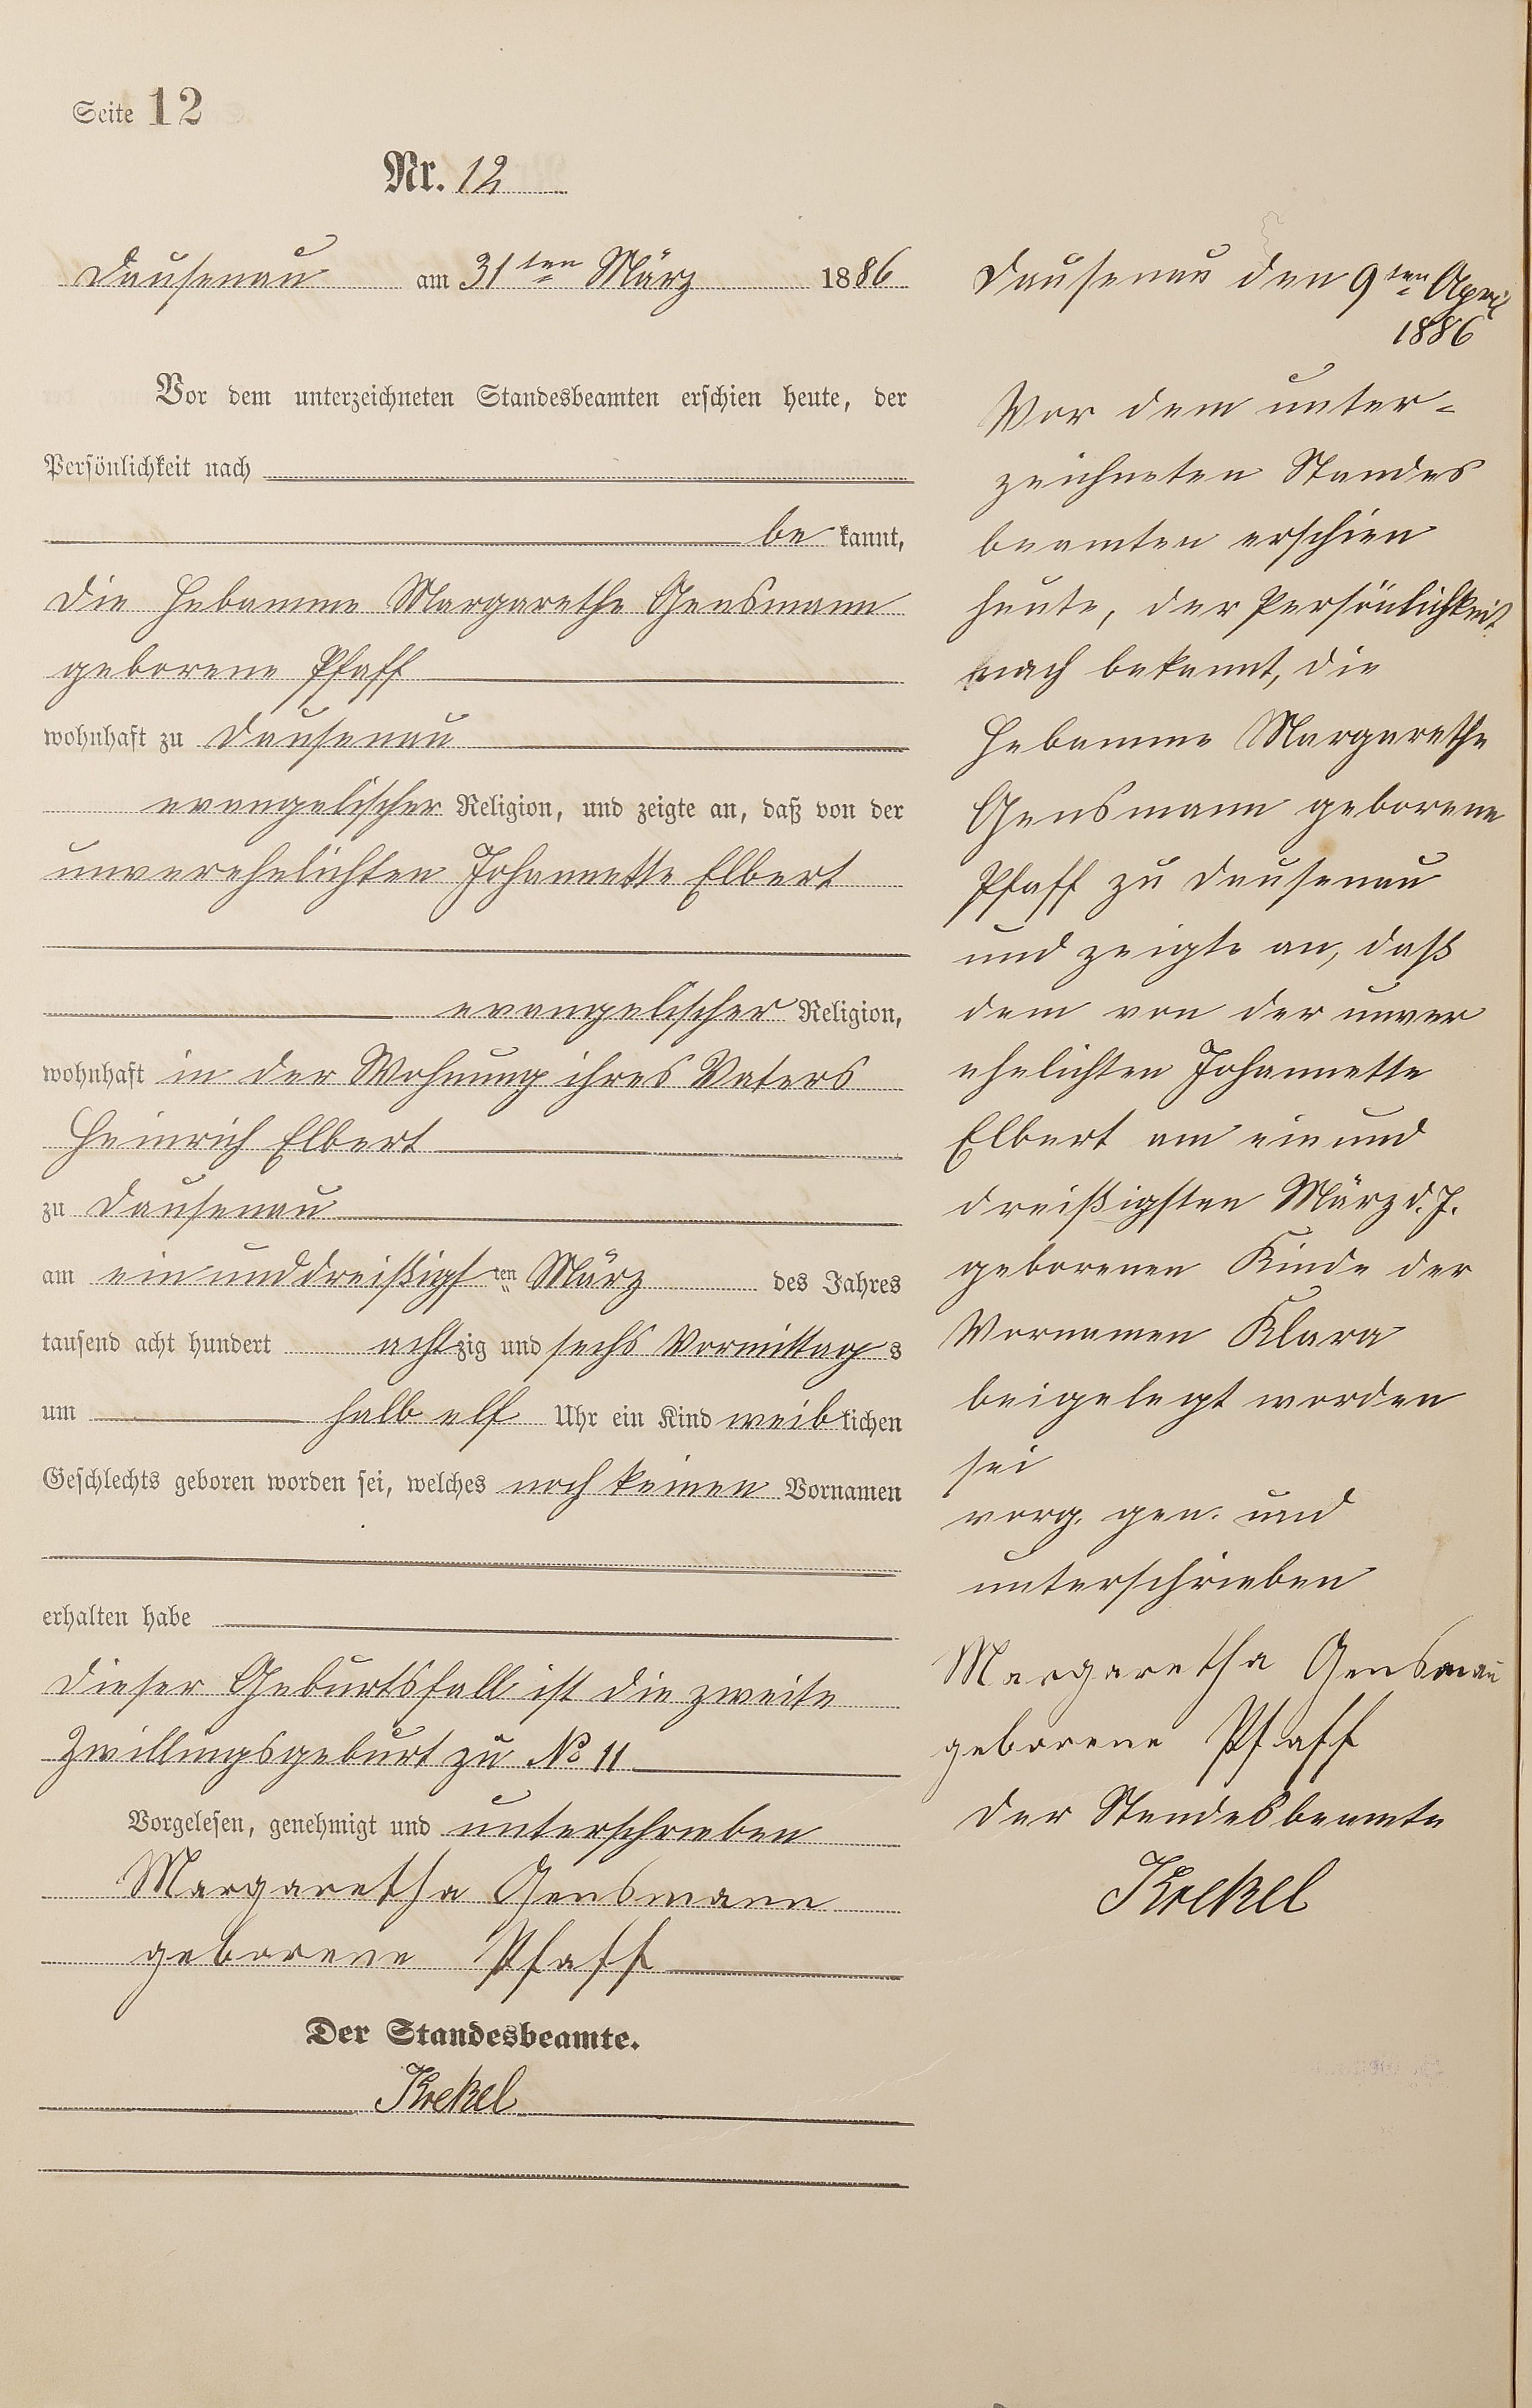 Seite 12
Nr. 12
Dausenau am 31ten März 1886
Vor dem unterzeichneten Standesbeamten erschien heute, der
Persönlichkeit nach
be kannt,
die Hebamme Margarethe Gensmann
geborene Pfaff
wohnhaft zu Dausenau
evangelischer Religion, und zeigte an, daß von der
unverehelichten Johannette Elbert
evangelischer Religion,
wohnhaft in der Wohnung ihres Vaters
Heinrich Elbert
zu Dausenau
am ein und dreißigsten März des Jahres
tausend acht hundert achtzig und sechs Vormittags
um halb elf Uhr ein Kind weiblichen
Geschlechts geboren worden sei, welches noch keinen Vornamen
erhalten habe
Dieser Geburtsfall ist die zweite
Zwillingsgeburt zu No 11
Vorgelesen, genehmigt und unterschrieben
Margaretha Gensmann
geborene Pfaff
Der Standesbeamte.
Krekel
Dausenau den 9ten April
1886
Vor dem unter-
zeichneten Standes
beamten erschien
heute, der Persönlichkeit
nach bekannt, die
Hebamme Margarethe
Gensmann geborene
Pfaff zu Dausenau
und zeigte an, daß
dem von der unver
ehelichten Johannette
Elbert am ein und
dreißigsten März d. J.
geborenen Kinde der
Vornamen Klara
beigelegt worden
sei
vorg. gen. und
unterschrieben
Margaretha Gensmañ
geborene Pfaff
Der Standesbeamte
Krekel